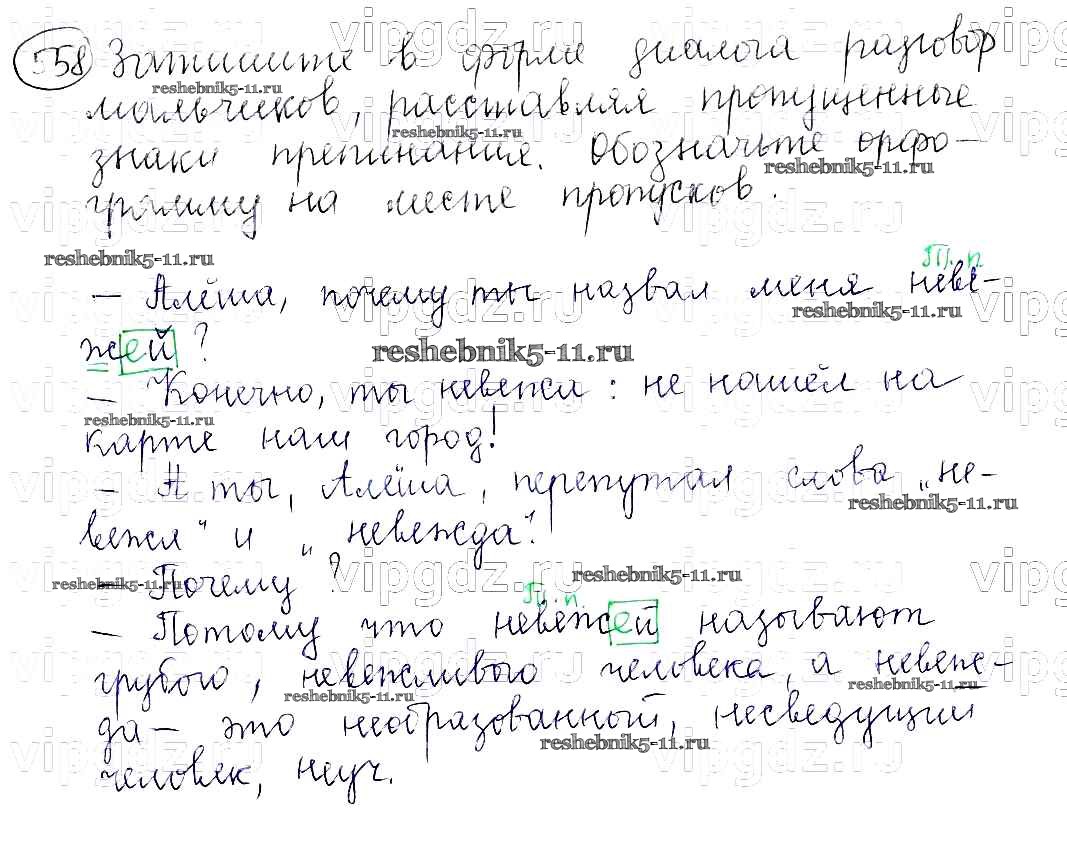 558 Запишите в форме диалога разговор
мальчиков, расставляя пропущенные
знаки препинания. Обозначьте орфо-
грамму на месте пропусков.
reshebnik5-11.ru
Т. п.
— Алёша, почему ты назвал меня неве-
жей?
— Конечно, ты невежа: не нашёл на
карте наш город!
— А ты, Алёша, перепутал слова „не-
вежа" и „невежда".
— Почему?
Тв. п.
— Потому что невежей называют
грубого, невежливого человека, а невеж-
да — это необразованный, несведущий
человек, неуч.